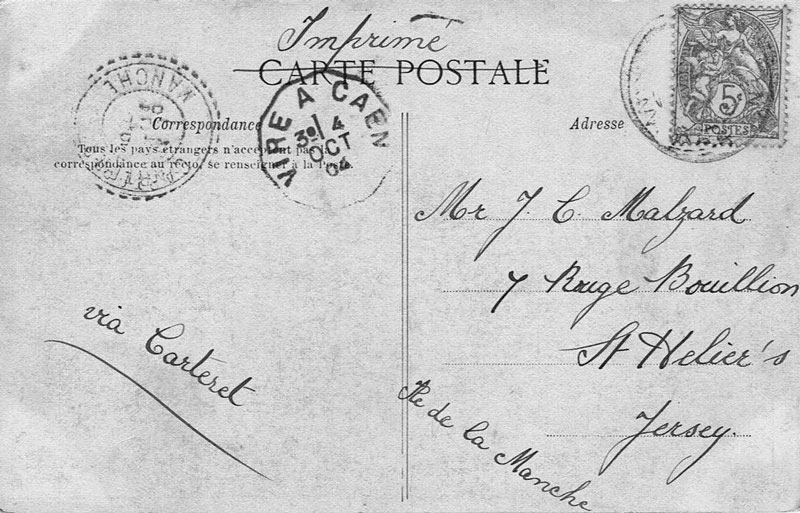 Imprimé
CARTE POSTALE
MANCHE
VIRE A CAEN
3e 4
OCT
04
Correspondance
Adresse
Tous les pays étrangers n'acceptent pas la
correspondance au recto, se renseigner à la Poste.
5c
POSTES
Mr J. C. Malzard
7 Rouge Bouillion
St Helier's
Jersey.
via Carteret
Ile de la Manche